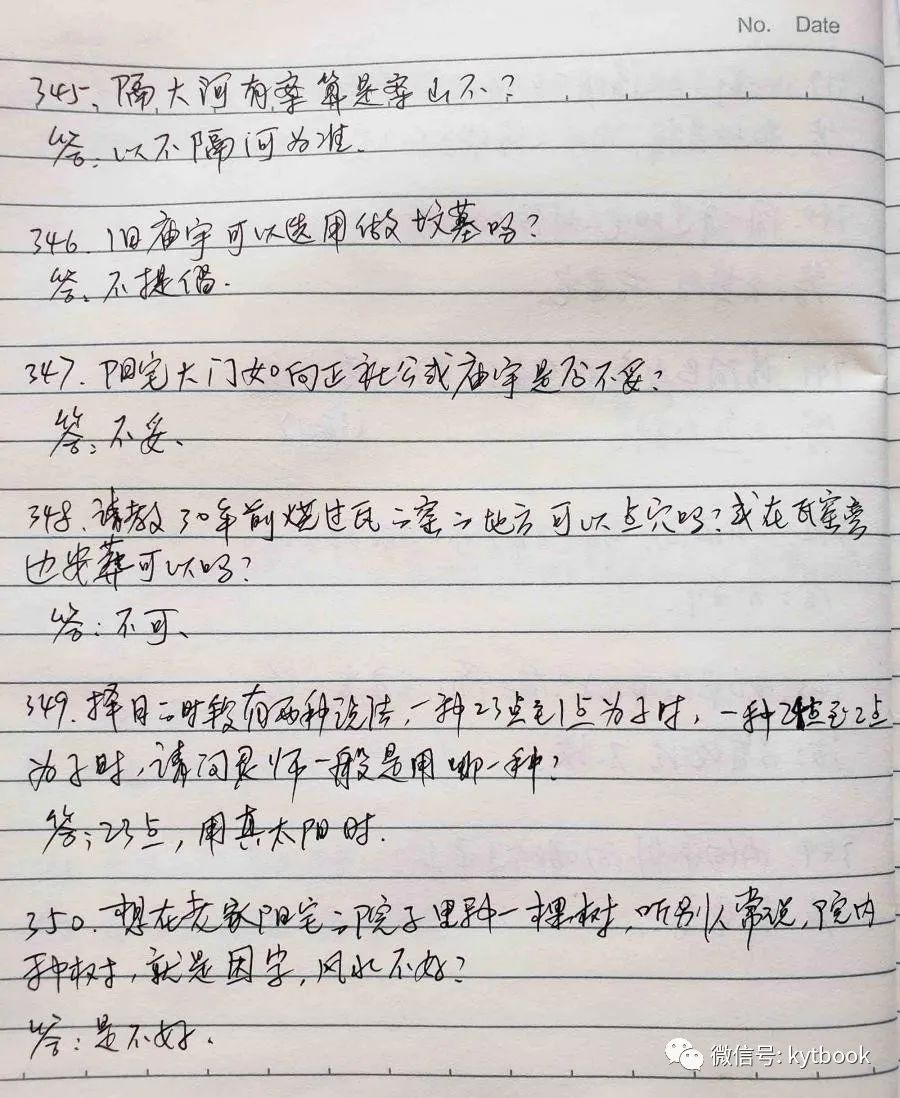 No. Date
345、隔大河有案算是案山不?
答:以不隔河为准.
346.旧庙宇可以选用做坟墓吗?
答:不提倡.
347.阳宅大门如向正社公或庙宇是否不妥?
答:不妥、
348.请教30年前烧过瓦之窑之地方可以点穴吗?或在瓦窑旁
边安葬可以吗?
答:不可、
349.择日之时辰有两种说法,一种23点至1点为子时,一种24点至2点
为子时,请问灵师一般是用哪一种?
答:23点,用真太阳时.
350.想在老家阳宅之院子里种一棵树,听别人常说,院内
种树,就是困字,风水不好?
答:是不好.
微信号: kytbook